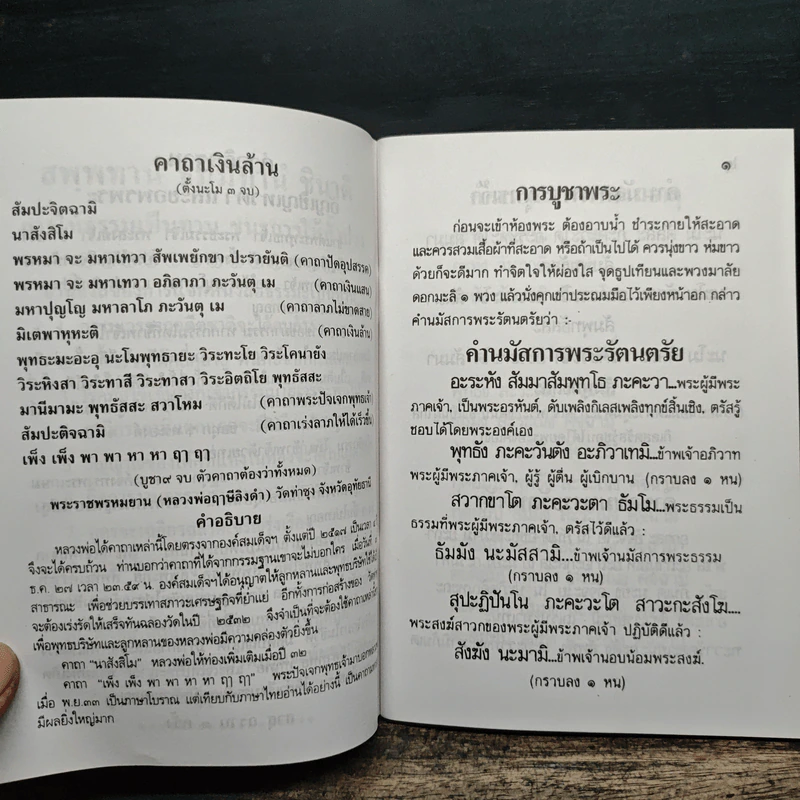 คาถาเงินล้าน
(ตั้งนะโม ๓ จบ)
สัมปะจิตฉามิ
นาสังสิโม
พรหมา จะ มหาเทวา สัพเพยักขา ปะรายันติ (คาถาปัดอุปสรรค)
พรหมา จะ มหาเทวา อภิลาภา ภะวันตุ เม (คาถาเงินแสน)
มหาปุญโญ มหาลาโภ ภะวันตุ เม (คาถาลาภไม่ขาดสาย)
มิเตพาหุหะติ (คาถาเงินล้าน)
พุทธะมะอะอุ นะโมพุทธายะ วิระทะโย วิระโคนายัง
วิระหิงสา วิระทาสี วิระทาสา วิระอิตถิโย พุทธัสสะ
มานีมามะ พุทธัสสะ สวาโหม (คาถาพระปัจเจกพุทธเจ้า)
สัมปะติจฉามิ (คาถาเร่งลาภให้ได้เร็วขึ้น)
เพ็ง เพ็ง พา พา หา หา ฤๅ ฤๅ
(บูชา๙ จบ ตัวคาถาต้องว่าทั้งหมด)
พระราชพรหมยาน (หลวงพ่อฤาษีลิงดำ) วัดท่าซุง จังหวัดอุทัยธานี
คำอธิบาย
หลวงพ่อได้คาถาเหล่านี้โดยตรงจากองค์สมเด็จฯ ตั้งแต่ปี ๒๕๑๗ เป็นเวลา
จึงจะได้ครบถ้วน ท่านบอกว่าคาถาที่ได้จากกรรมฐานเขาจะไม่บอกใคร เมื่อวันที่
ธ.ค. ๒๗ เวลา ๒๓.๕๙ น. องค์สมเด็จฯได้อนุญาตให้ลูกหลานและพุทธบริษัทใช้ได้
สาธารณะ เพื่อช่วยบรรเทาสภาวะเศรษฐกิจที่ย่ำแย่ อีกทั้งการก่อสร้างของ
จะต้องเร่งรัดให้เสร็จทันฉลองวัดในปี ๒๕๓๒ จึงจำเป็นที่จะต้องใช้คาถา
เพื่อพุทธบริษัทและลูกหลานของหลวงพ่อมีความคล่องตัวยิ่งขึ้น
คาถา "นาสังสิโม" หลวงพ่อให้ท่องเพิ่มเติมเมื่อปี ๓๒
คาถา "เพ็ง เพ็ง พา พา หา หา ฤๅ ฤๅ" พระปัจเจกพุทธเจ้ามาบอก
เมื่อ พ.ย.๓๓ เป็นภาษาโบราณ แต่เทียบกับภาษาไทยอ่านได้อย่างนี้ เป็นคาถา
มีผลยิ่งใหญ่มาก
๑
การบูชาพระ
ก่อนจะเข้าห้องพระ ต้องอาบน้ำ ชำระกายให้สะอาด
และควรสวมเสื้อผ้าที่สะอาด หรือถ้าเป็นไปได้ ควรนุ่งขาว ห่มขาว
ด้วยก็จะดีมาก ทำจิตใจให้ผ่องใส จุดธูปเทียนและพวงมาลัย
ดอกมะลิ ๑ พวง แล้วนั่งคุกเข่าประณมมือไว้เพียงหน้าอก กล่าว
คำนมัสการพระรัตนตรัยว่า :-
คำนมัสการพระรัตนตรัย
อะระหัง สัมมาสัมพุทโธ ภะคะวา...พระผู้มีพระ
ภาคเจ้า, เป็นพระอรหันต์, ดับเพลิงกิเลสเพลิงทุกข์สิ้นเชิง, ตรัสรู้
ชอบได้โดยพระองค์เอง
พุทธัง ภะคะวันตัง อะภิวาเทมิ...ข้าพเจ้าอภิวาท
พระผู้มีพระภาคเจ้า, ผู้รู้ ผู้ตื่น ผู้เบิกบาน (กราบลง ๑ หน)
สวากขาโต ภะคะวะตา ธัมโม...พระธรรมเป็น
ธรรมที่พระผู้มีพระภาคเจ้า, ตรัสไว้ดีแล้ว :
ธัมมัง นะมัสสามิ...ข้าพเจ้านมัสการพระธรรม
(กราบลง ๑ หน)
สุปะฏิปันโน ภะคะวะโต สาวะกะสังโฆ....
พระสงฆ์สาวกของพระผู้มีพระภาคเจ้า ปฏิบัติดีแล้ว :
สังฆัง นะมามิ...ข้าพเจ้านอบน้อมพระสงฆ์.
(กราบลง ๑ หน)